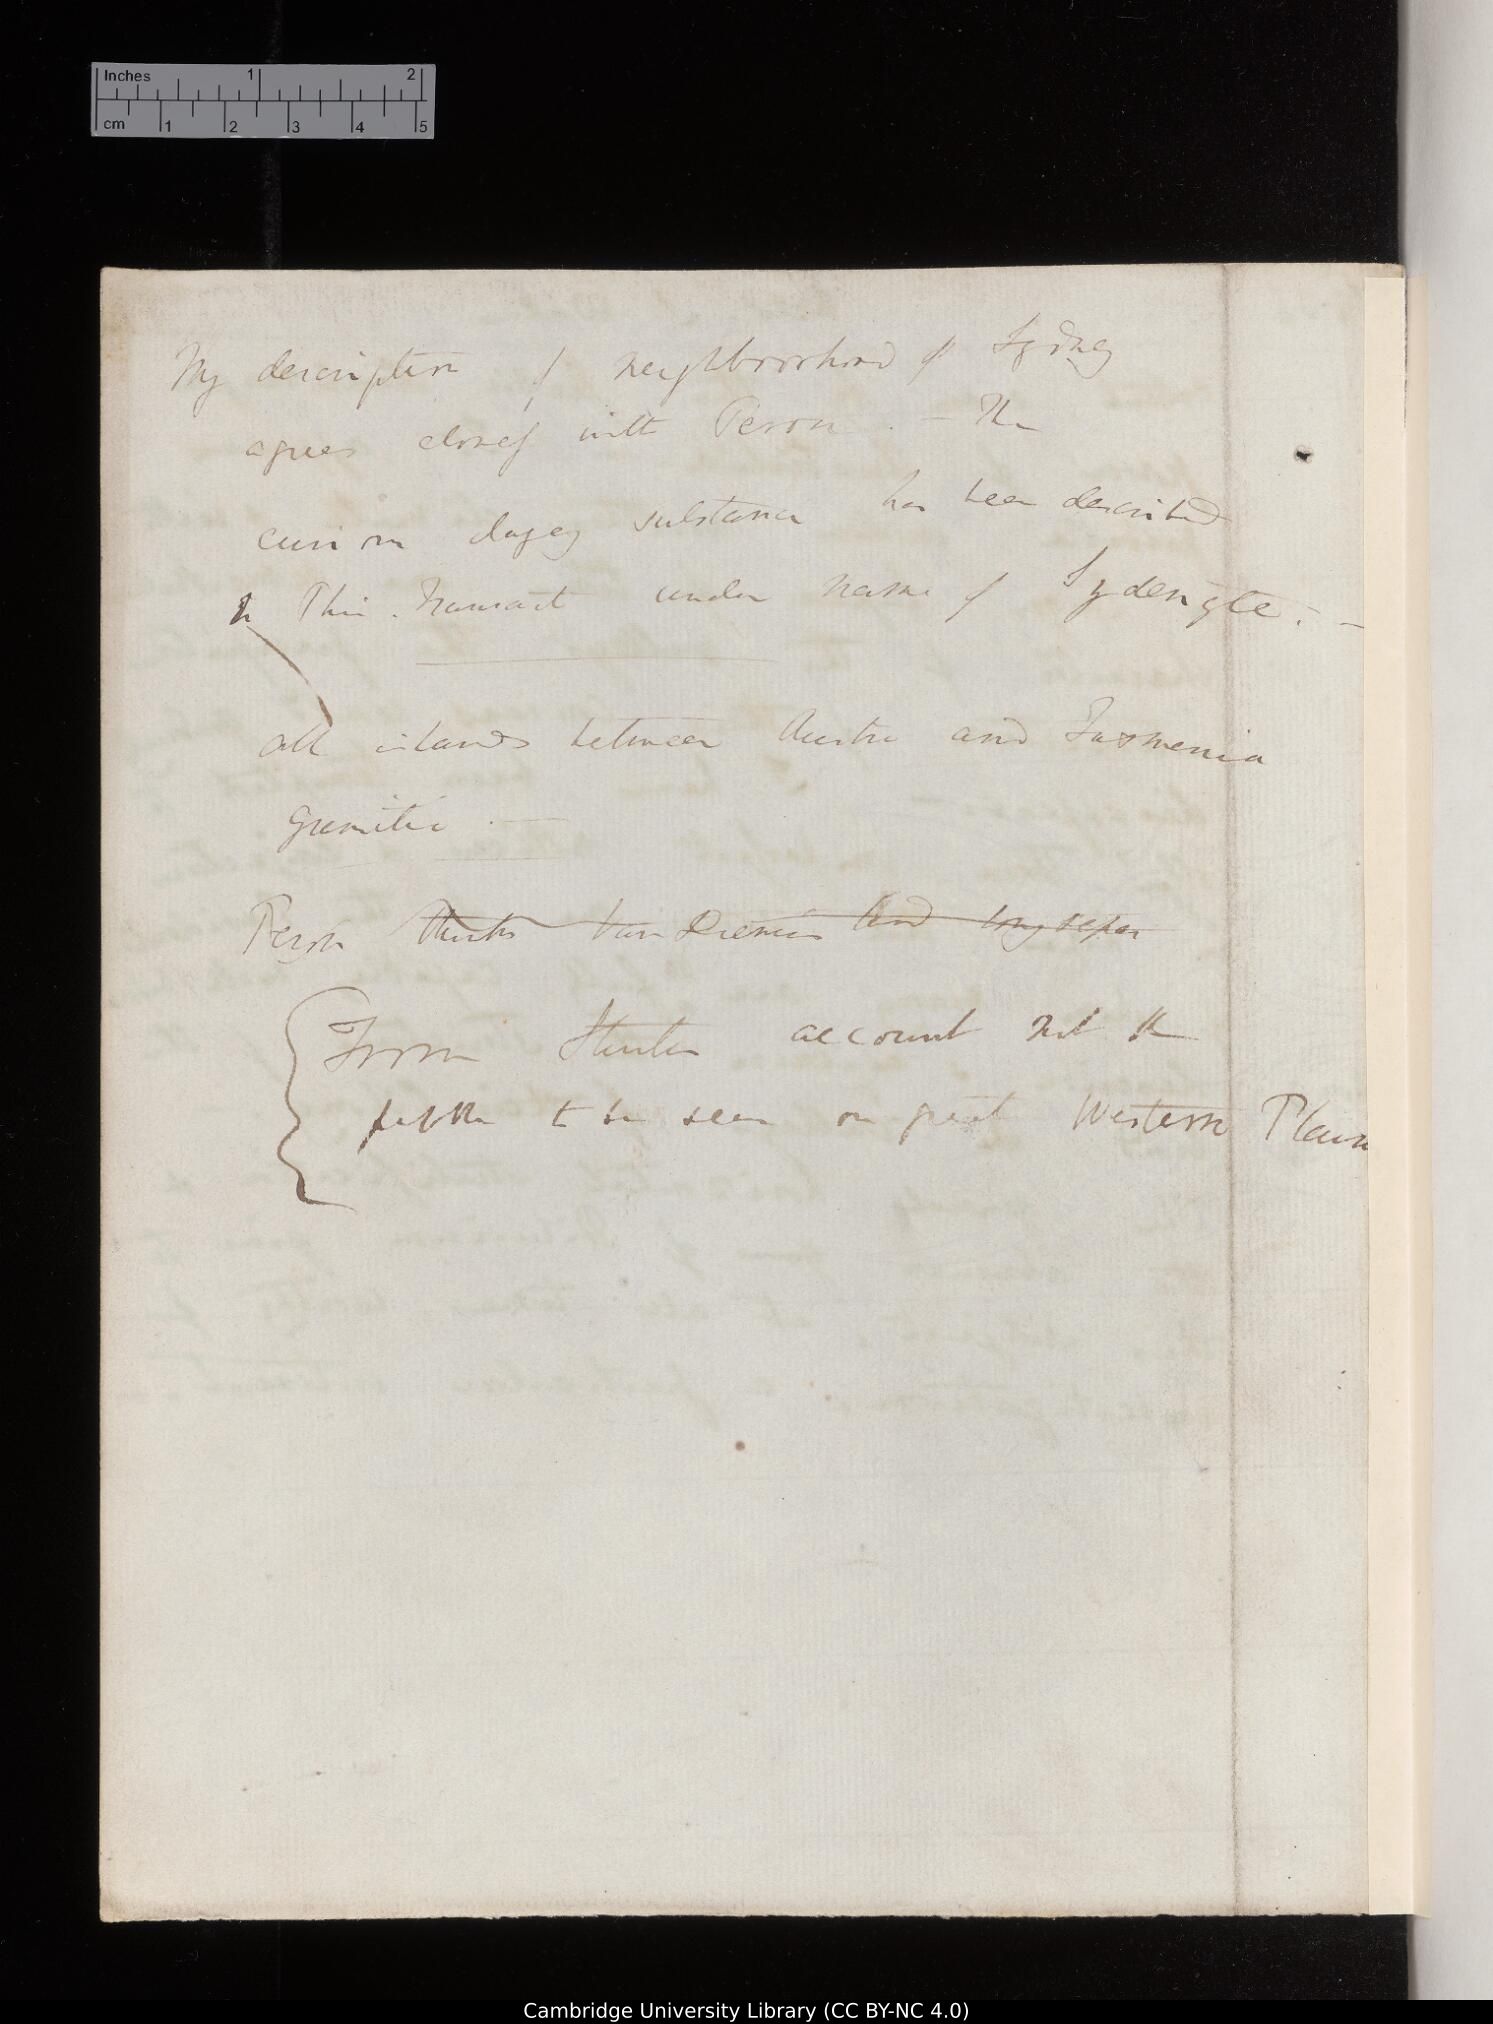 Inches 1 2
cm 1 2 3 4 5
My description of neighbourhood of Sydney
agrees closely with Peron. — The
curious clayey substance has been described
in Phil. Transact under name of Sydengte. —
all islands between Austra and Tasmania
granitic. —
Peron thinks Van Diemen's land long separ
From account not the
to be seen on great Western Plains
Cambridge University Library (CC BY-NC 4.0)